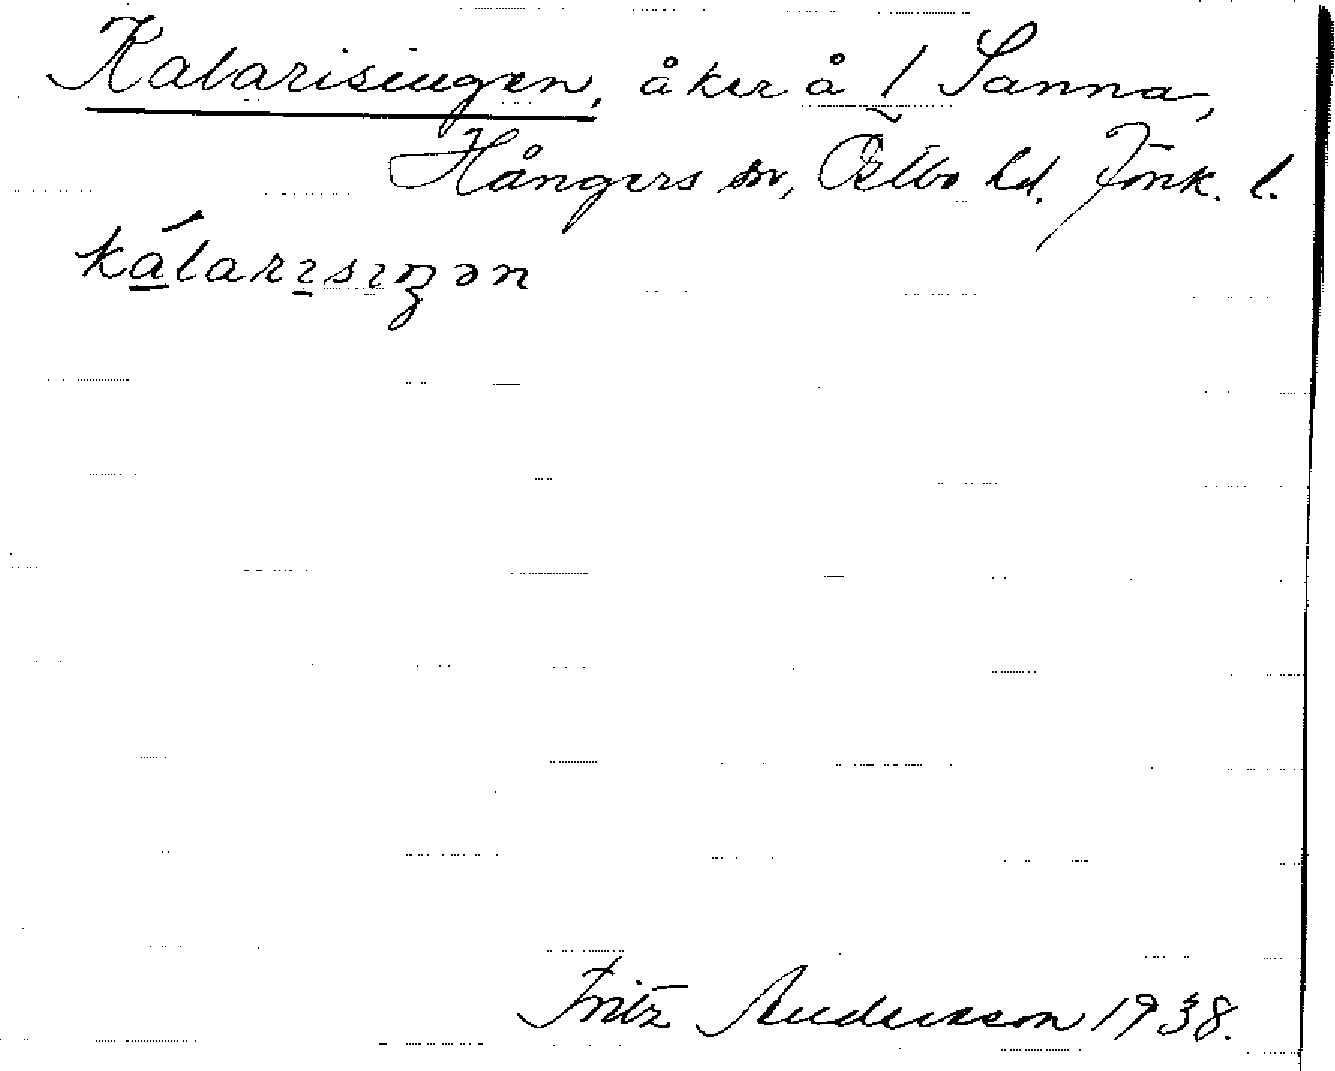 Kalarisingen, åker å 1 Sanna,
Hångers sn, Östbo hd. Jönk. l.
kálarısıŋən
Fritz Andersson 1938.